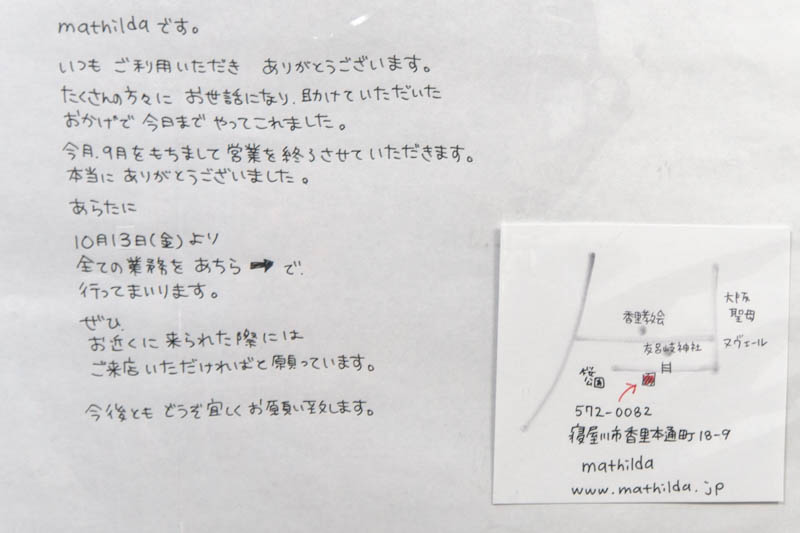 mathildaです。
いつも ご利用いただき ありがとうございます。
たくさんの方々に お世話になり、助けていただいた
おかげで 今日まで やってこれました。
今月、9月をもちまして営業を終了させていただきます。
本当に ありがとうございました。
あらたに
10月13日(金)より
全ての業務を あちら ➡ で、
行ってまいります。
ぜひ、
お近くに 来られた際には
ご来店いただければと願っています。
今後とも どうぞ宜しく お願い致します。
香里教会
大阪
聖母
友呂岐神社
ヌヴェール
桜
公園
572-0082
寝屋川市香里本通町18-9
mathilda
www.mathilda.jp